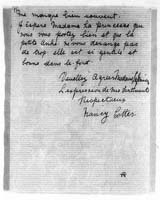 me manque bien souvent.
J'espère Madame la princesse que
vous vous portez bien et que la
petite Anki ne vous derange pas
de trop elle est si gentile et
bonne dans le fond
Veuillez Agreer Madame
L'expression de mes Sentiments
Respectueux
Nancy